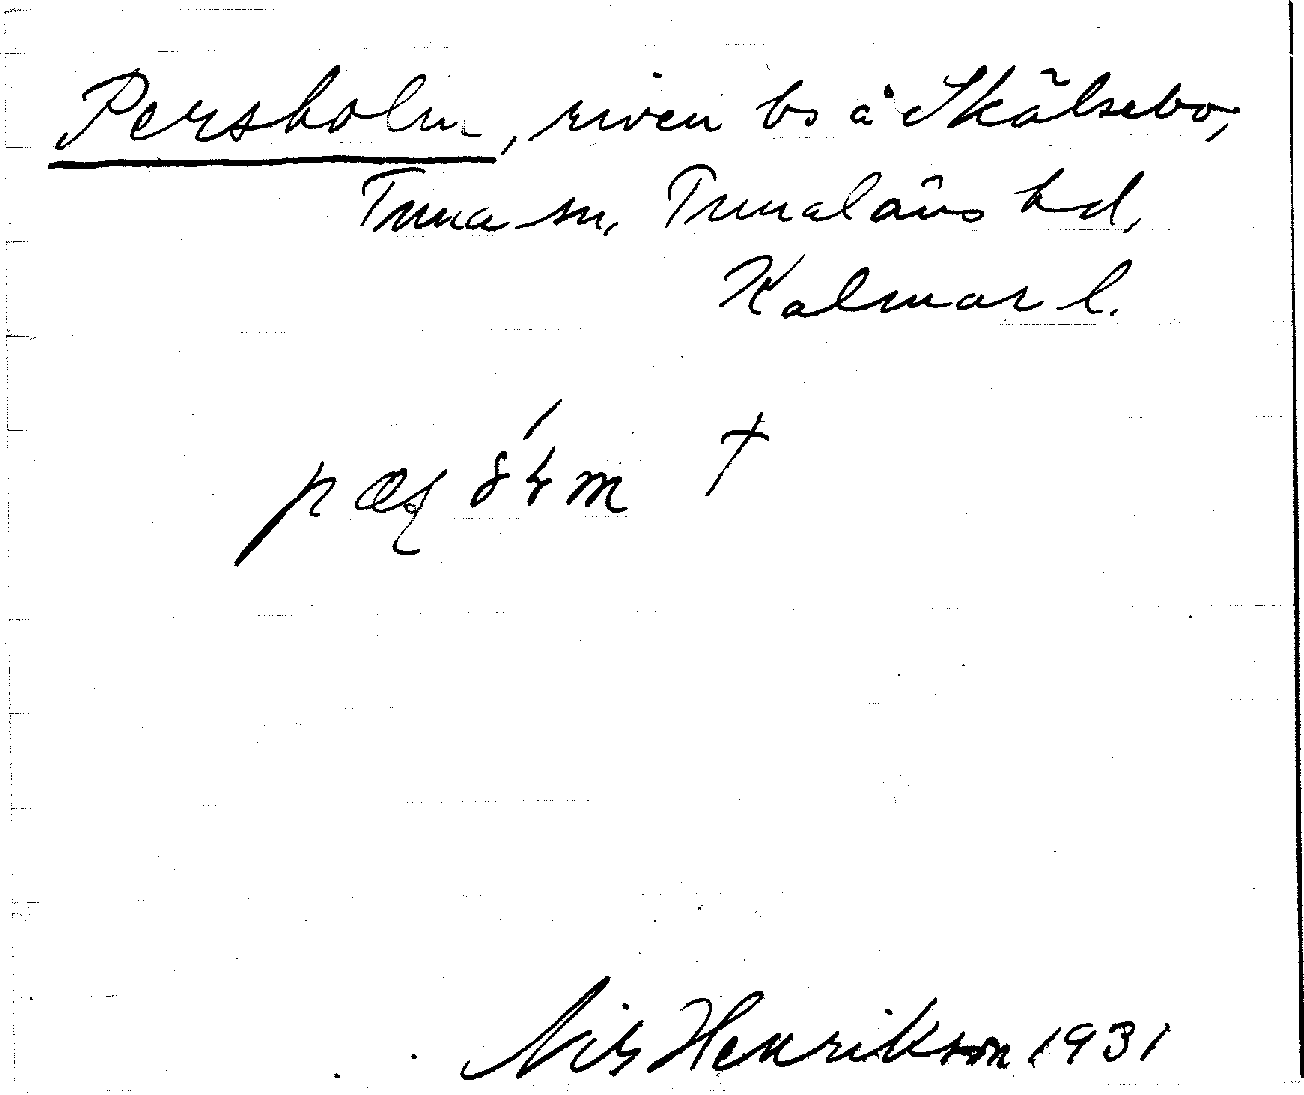 Persholm, riven bs å Skälsebo,
Tuna sn, Tunaläns hd,
Kalmar l.
†
Nils Henrikson 1931